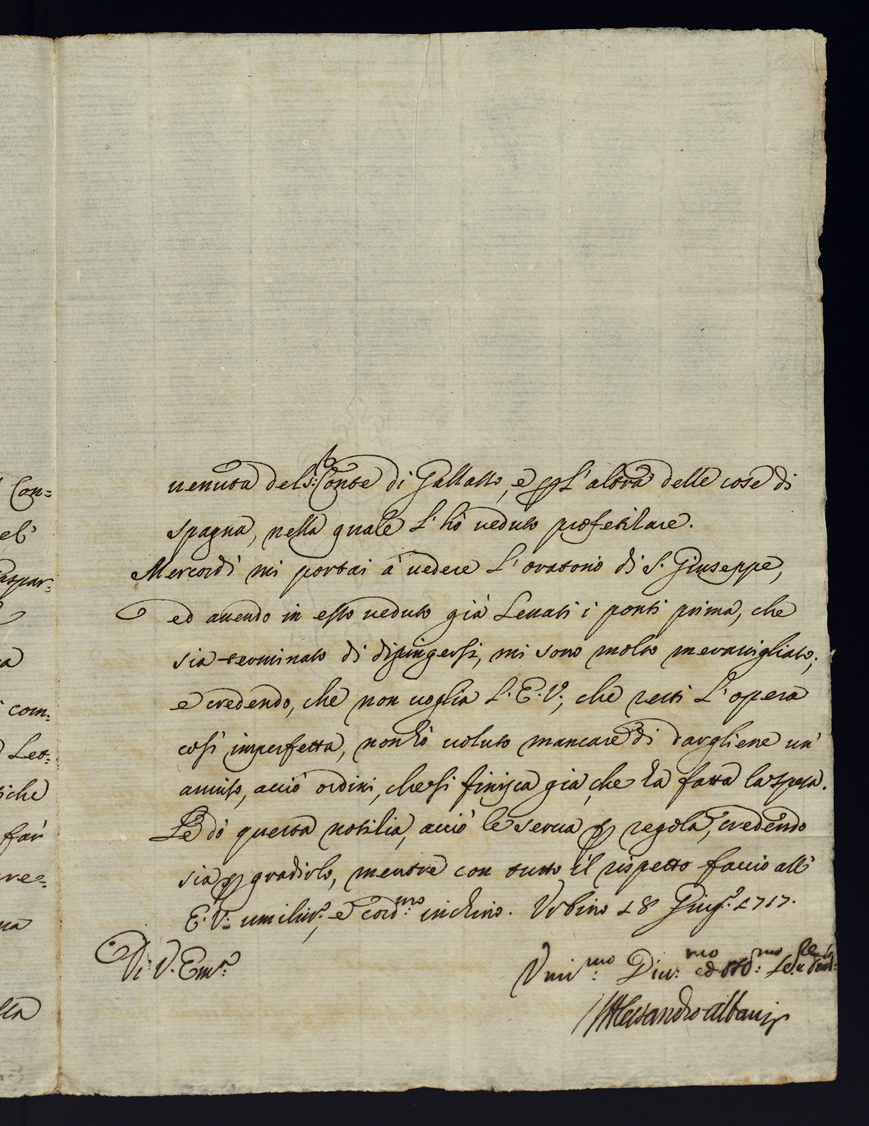 Con=
el'
aspar=
a
com=
Let=
siche
far
re=
na
lla
uenuta del S.r Conte di Gallasso, e p l'altra delle cose di
spagna, nella quale l'hò ueduto profetizare.
Mercordì mi portai à uedere l'oratorio di S. Giuseppe,
ed auendo in esso ueduto già leuati i ponti prima, che
sia terminato di dipingersi, mi sono molto merauigliato;
e credendo, che non uoglia l'E. V., che resti l'opera
così imperfetta, non hò uoluto mancare di dargliene un'
auuiso, acciò ordini, che si finisca già, che hà fatta la spesa.
Le dò questa notitia, acciò le serua p regola, credendo
sia p gradirlo, mentre con tutto il rispetto faccio all'
E. V. umiliss.a, e cord.mo inchino. Urbino 18 Giug.o 1717.
Di V. Em.a
Umi.mo Diu.mo ed Obl.mo Se.re
Alessandro Albani